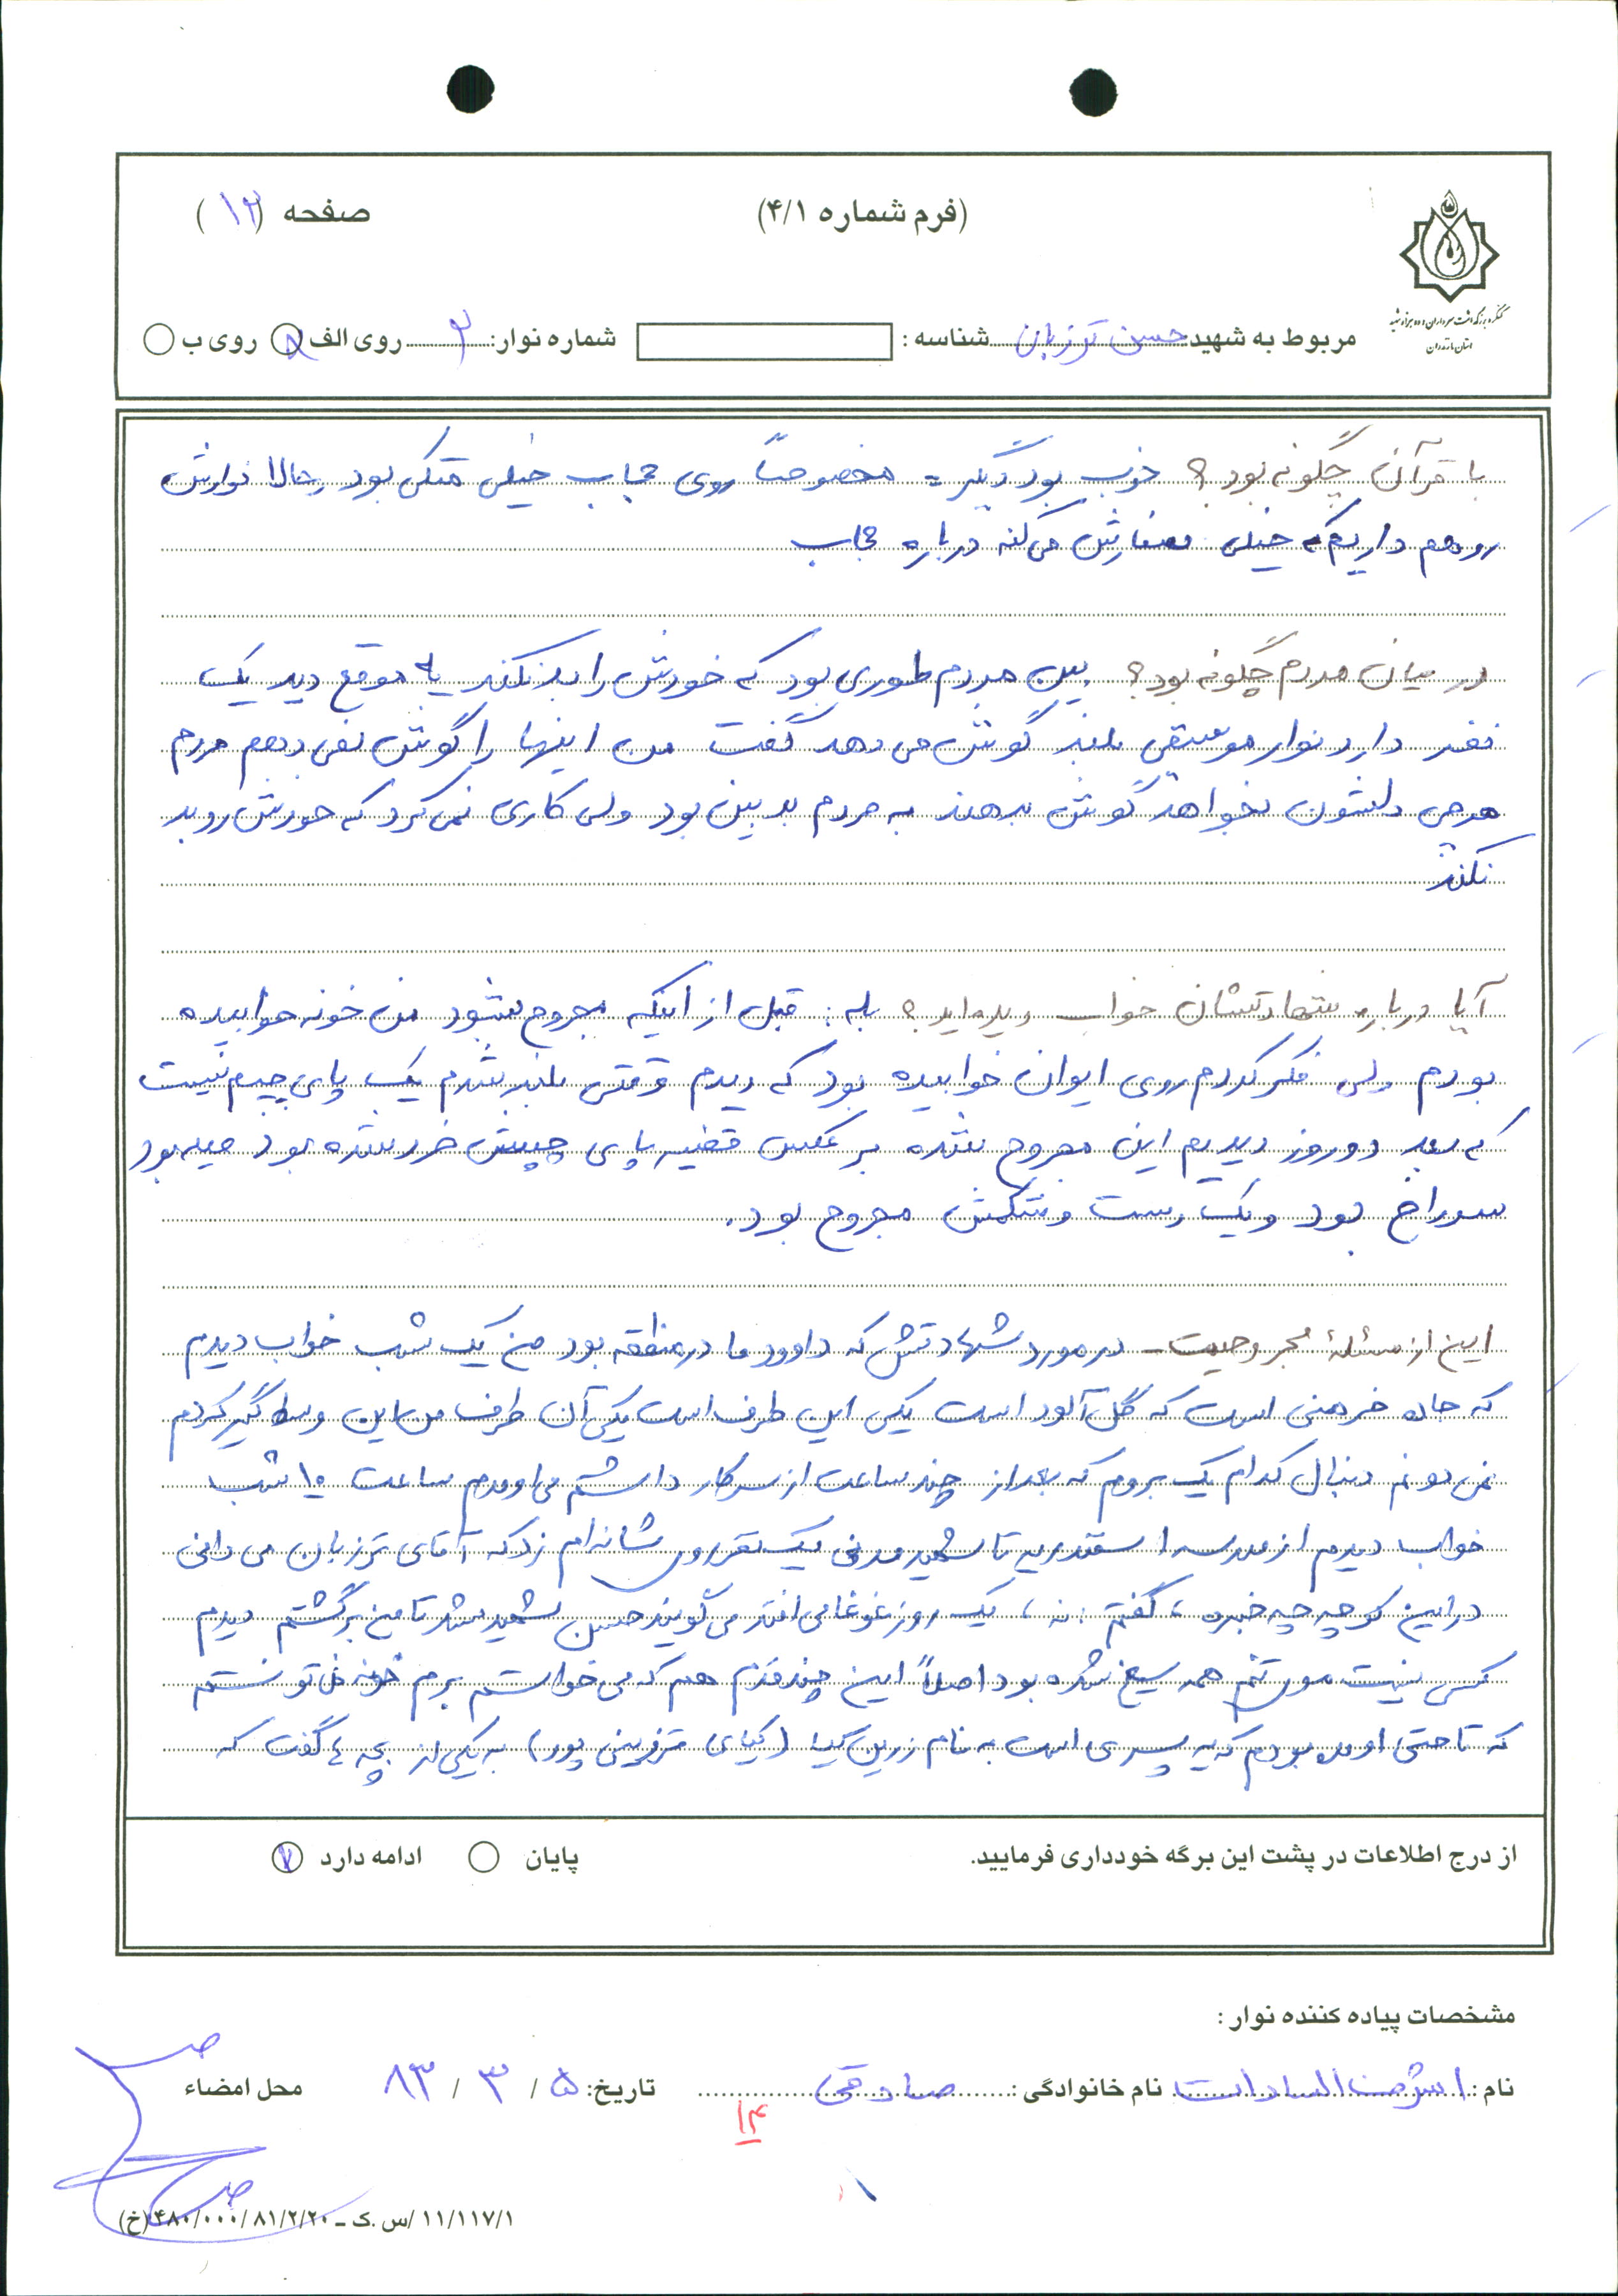 صفحه (۱۲)
(فرم شماره ۴/۱)
کنگره بزرگداشت سرداران و ده هزار شهید
استان مازندران
مربوط به شهید حسن ترزبان شناسه : شماره نوار: ۲ روی الف روی ب
با قرآن چگونه بود؟ خوب بود دیگر = مخصوصاً روی حجاب خیلی متکی بود حالا نوارش
رو هم داریم که خیلی سفارش می‌کنه درباره حجاب
در میان مردم چگونه بود؟ بین مردم طوری بود که خودش را بد نکند یه موقع دید یک
نفر دارد نوار موسیقی بلند گوش می دهد گفت من اینها را گوش نمی دهم مردم
هرچی دلشون بخواهد گوش بدهند به مردم بدبین بود ولی کاری نمی کرد که خودش رو بد
نکند
آیا درباره شهادتشان خواب دیده‌اید؟ بله : قبل از اینکه مجروح بشود من خونه خوابیده
بودم ولی فکر کردم روی ایوان خوابیده بود که دیدم وقتی بلند شدم یک پای چپم نیست
که بعد دو روز دیدیم این مجروح شده بر عکس قضیه پای چپش خرد شده بود میله بود
سوراخ بود و یک دست و شکمش مجروح بود.
این از مسئلهٔ مجروحیت - در مورد شهادتش که داوود ما در منطقه بود من یک شب خواب دیدم
که جاده خرمنی است که گل آلود است یکی این طرف است یکی آن طرف من این وسط گیر کردم
نمی دونم دنبال کدام یک بروم که بعد از چند ساعت از سر کار داشتم می اومدم ساعت ۱۰ شب
خواب دیدم از مدرسه اسفندیریه تا شهید مدنی یک نفر روی شانه‌ام زد که آقای ترزبان می دانی
در این کوچه چه خبره ، گفتم : نه ، یک روز غوغا می افتد می گویند حسن شهید شد تا من برگشتم دیدم
کسی نیست موی تنم همه سیخ شده بود اصلاً این چند قدم هم که می خواستم برم خونه نمی تونستم
که تا حتی اومده بودم که یه پسری است به نام زرین کیا (کیای قزوینی پور) به یکی از بچه ها گفت که
از درج اطلاعات در پشت این برگه خودداری فرمایید. پایان ادامه دارد
مشخصات پیاده کننده نوار :
نام : اشرف السادات نام خانوادگی : صادقی تاریخ: ۵ / ۳ / ۸۳ محل امضاء
۱۴
۱۱/۱۱۷/۱ /س.ک ـ ۸۱/۲/۲۰ /۴۸۰/۰۰۰ (خ)